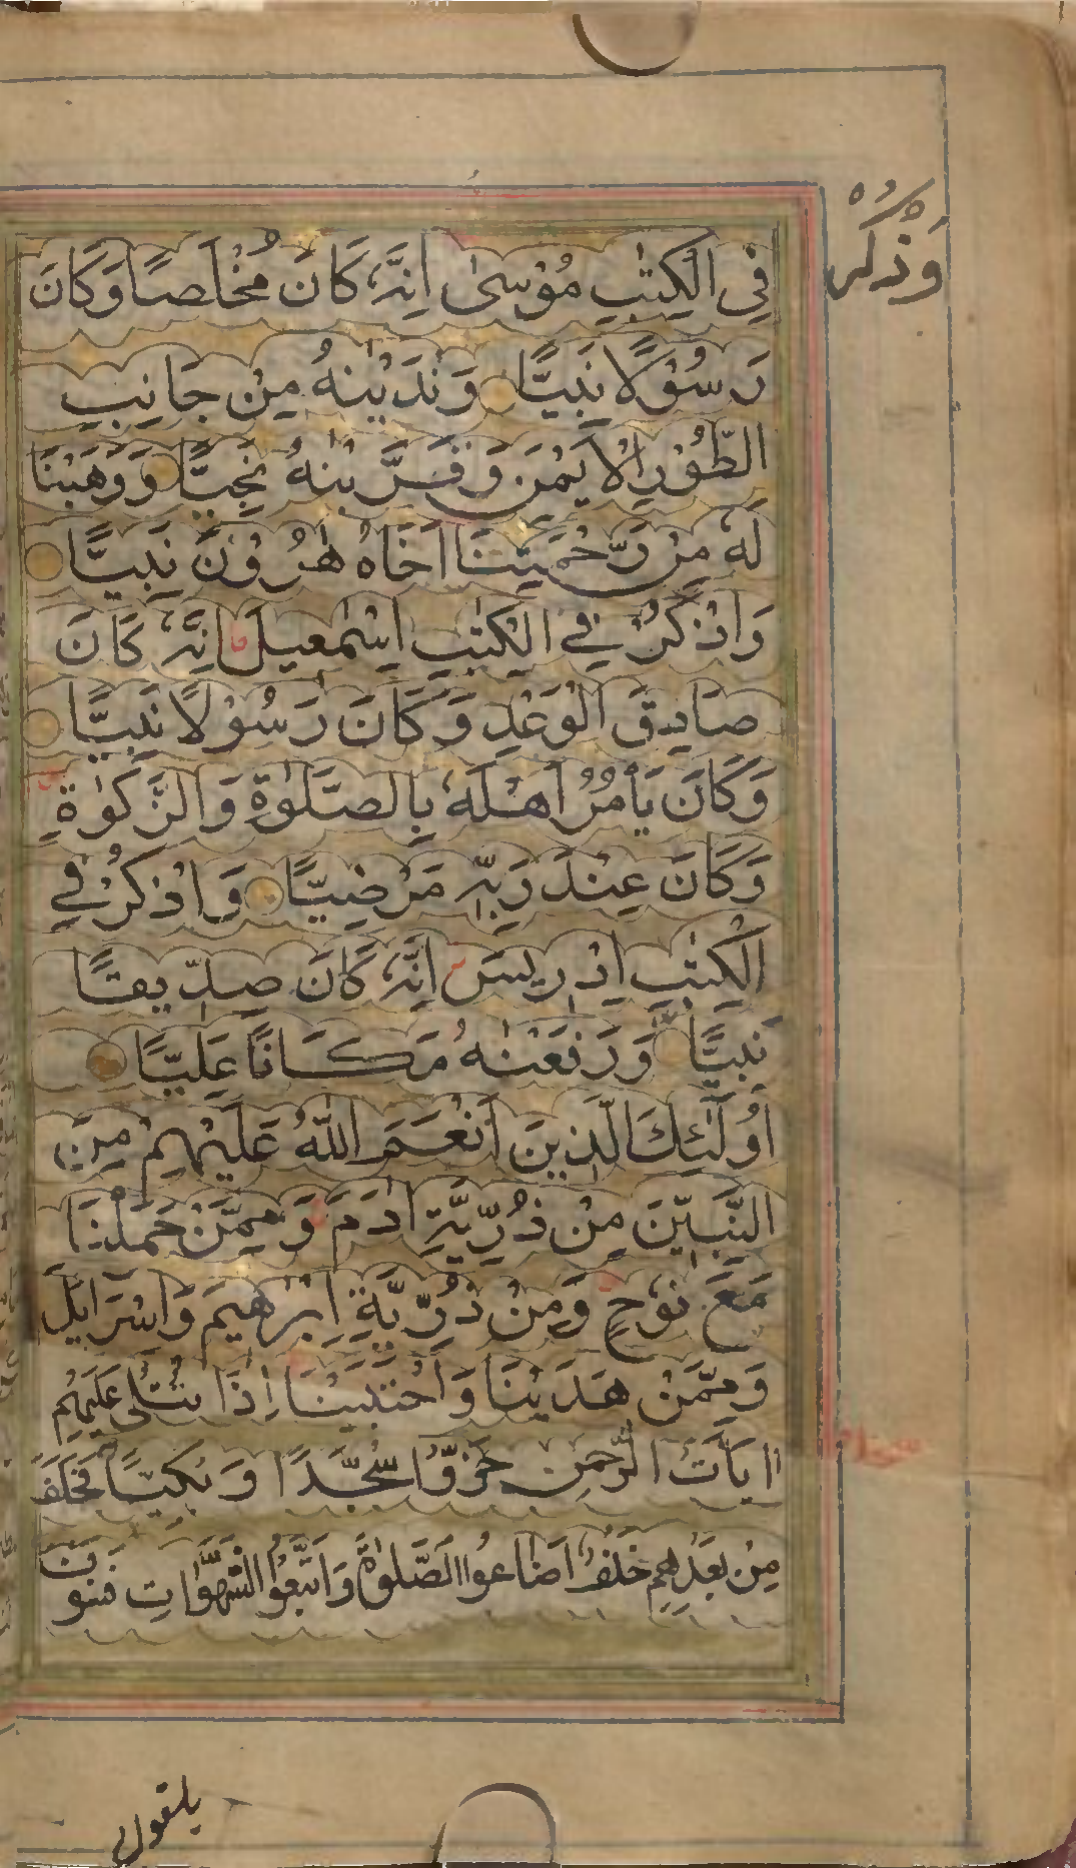 وَاذْكُرْ
فِي الْكِتٰبِ مُوْسٰى اِنَّهٗ كَانَ مُخْلَصًا وَكَانَ
رَسُوْلًا نَبِيًّا وَنَدَيْنٰهُ مِنْ جَانِبِ
الطُّوْرِ الْاَيْمَنِ وَقَرَّبْنٰهُ نَجِيًّا وَوَهَبْنَا
لَهٗ مِنْ رَحْمَتِنَا اَخَاهُ هٰرُوْنَ نَبِيًّا
وَاذْكُرْ فِي الْكِتٰبِ اِسْمٰعِيلَ اِنَّهٗ كَانَ
صَادِقَ الْوَعْدِ وَكَانَ رَسُوْلًا نَبِيًّا
وَكَانَ يَأْمُرُ اَهْلَهٗ بِالصَّلٰوةِ وَالزَّكٰوةِ
وَكَانَ عِنْدَ رَبِّهٖ مَرْضِيًّا وَاذْكُرْ فِي
الْكِتٰبِ اِدْرِيسَ اِنَّهٗ كَانَ صِدِّيقًا
نَبِيًّا وَرَفَعْنٰهُ مَكَانًا عَلِيًّا
اُولٰٓئِكَ الَّذِينَ اَنْعَمَ اللّٰهُ عَلَيْهِمْ مِنَ
النَّبِيّٖنَ مِنْ ذُرِّيَّةِ اٰدَمَ وَمِمَّنْ حَمَلْنَا
مَعَ نُوْحٍ وَمِنْ ذُرِّيَّةِ اِبْرٰهِيمَ وَاِسْرَايٰلَ
وَمِمَّنْ هَدَيْنَا وَاجْتَبَيْنَا اِذَا تُتْلٰى عَلَيْهِمْ
اٰيَاتُ الرَّحْمٰنِ خَرُّوْا سُجَّدًا وَبُكِيًّا فَخَلَفَ
مِنْ بَعْدِهِمْ خَلْفٌ اَضَاعُوا الصَّلٰوةَ وَاتَّبَعُوا الشَّهَوَاتِ فَسَوْفَ
يلقون